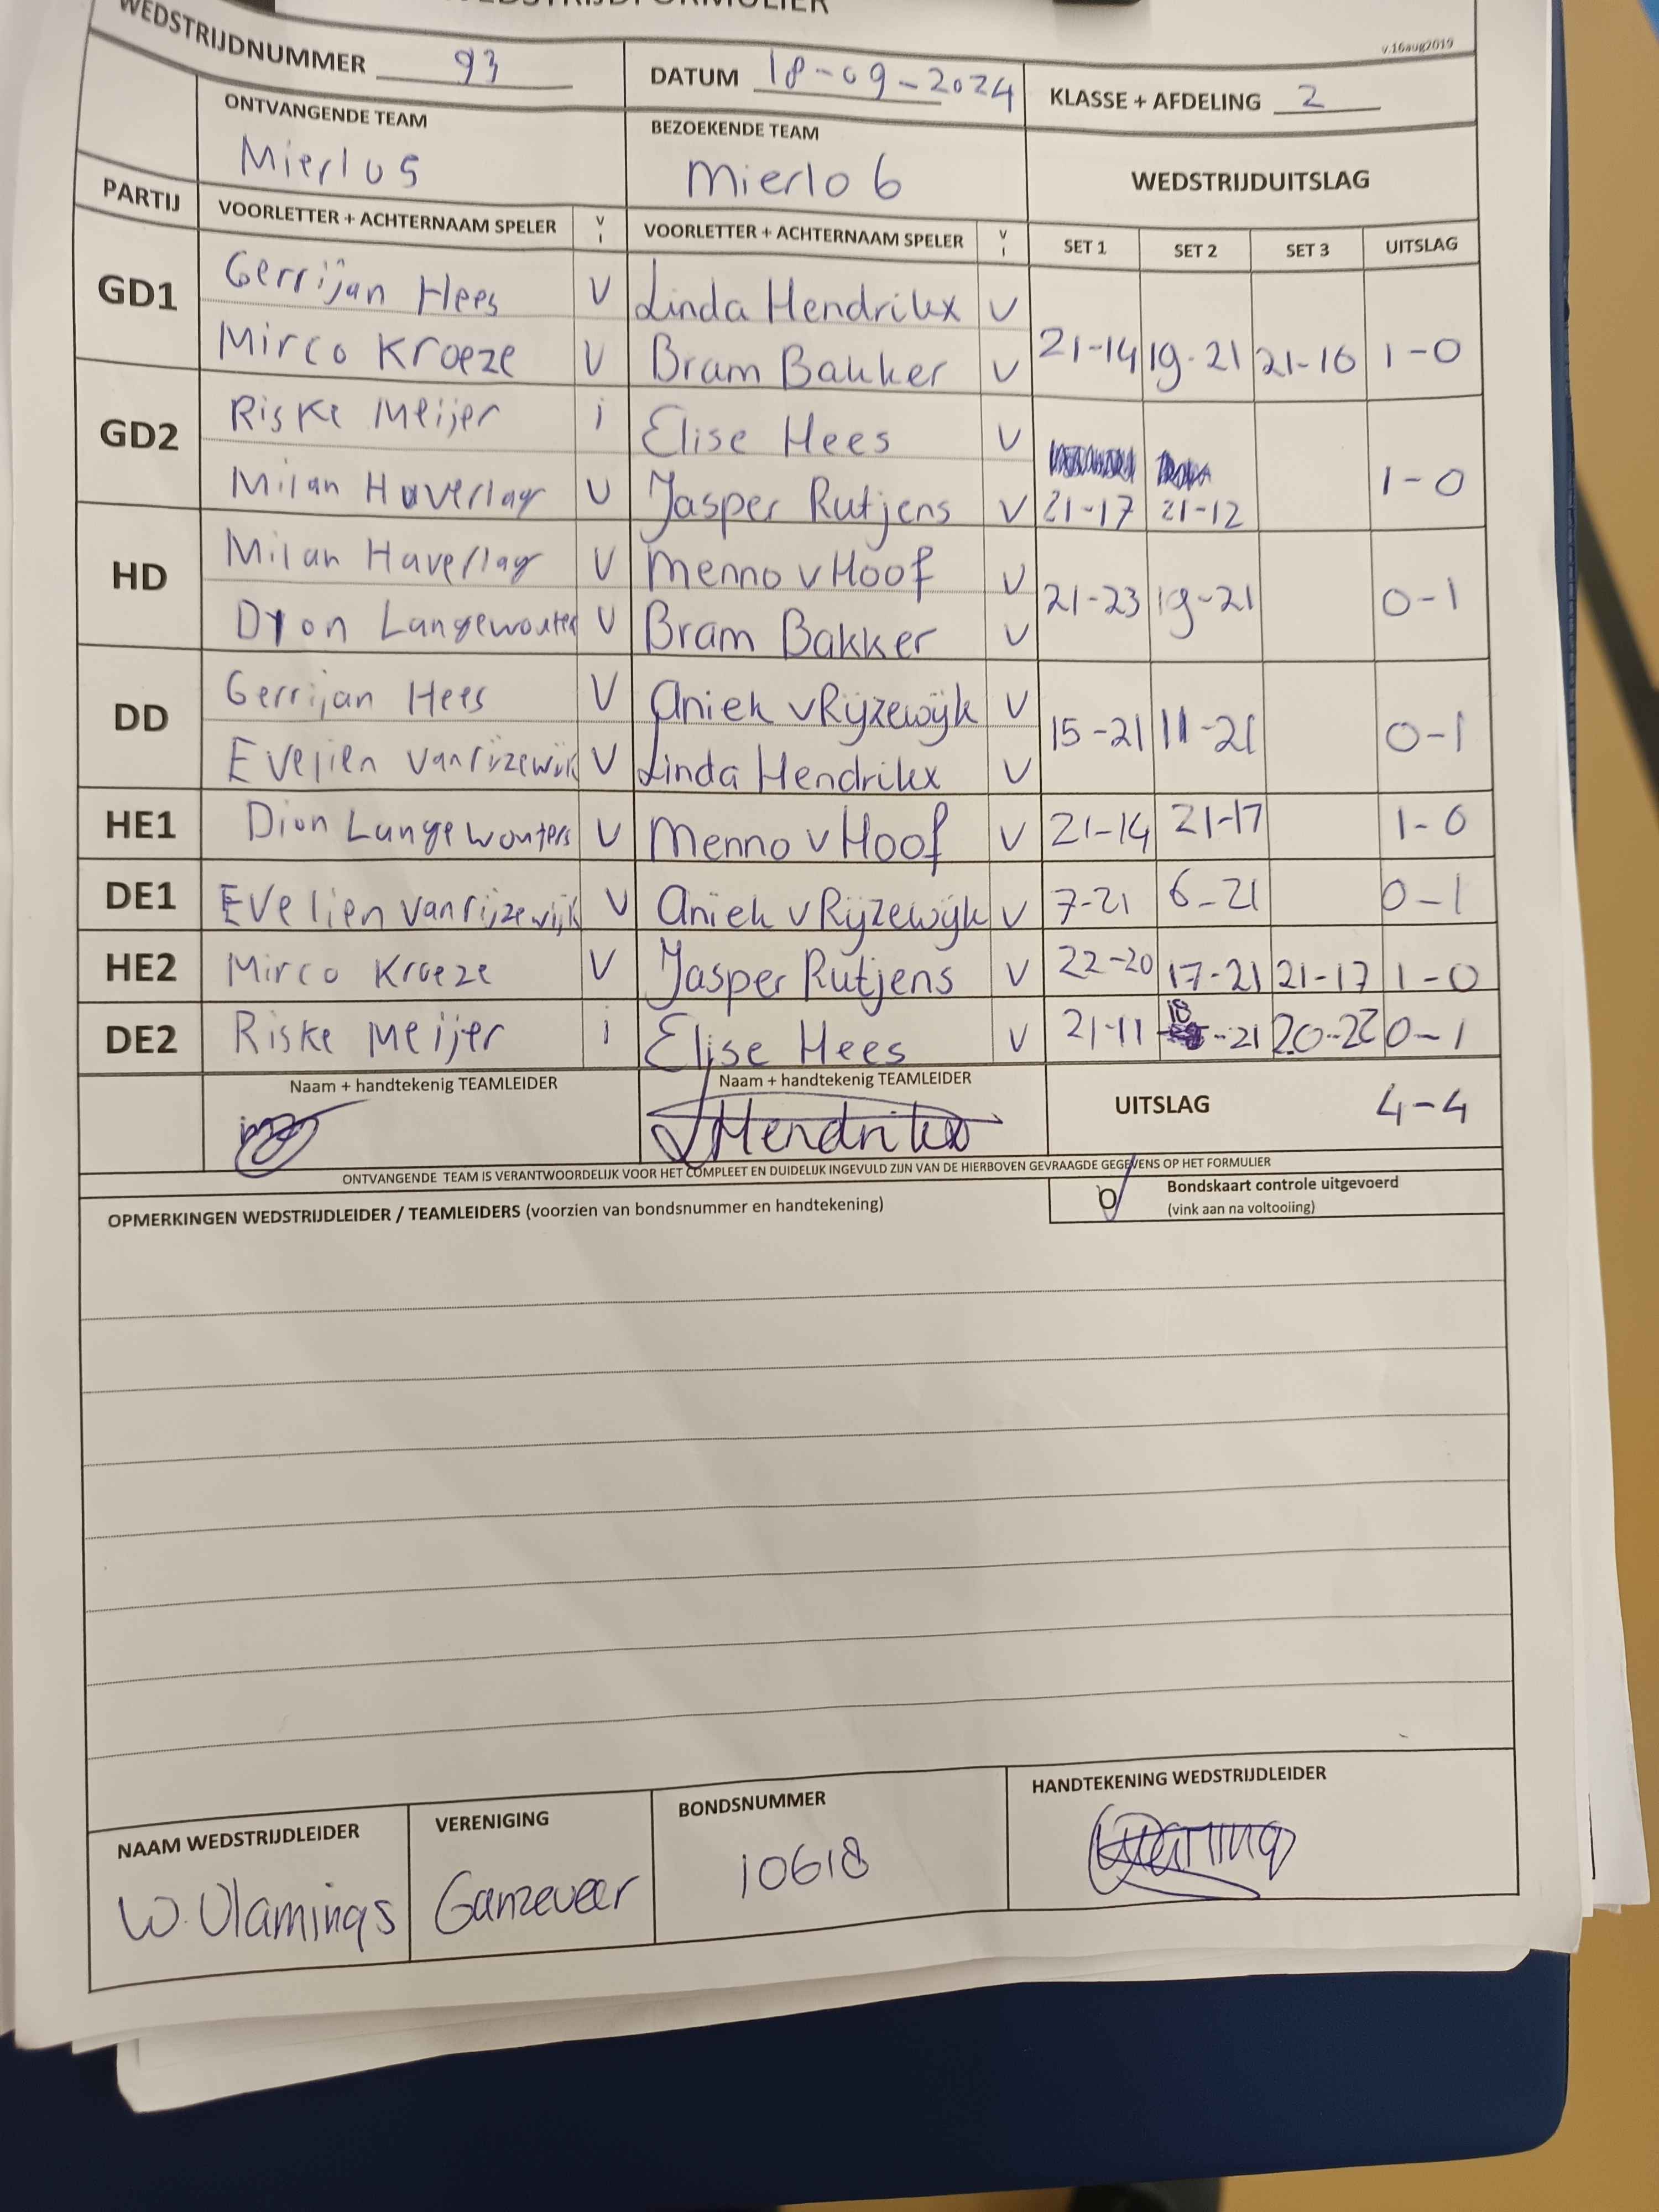 WEDSTRIJDFORMULIER
v.16aug2019
WEDSTRIJDNUMMER 93 DATUM 18-09-2024 KLASSE + AFDELING 2
ONTVANGENDE TEAM BEZOEKENDE TEAM
Mierlo 5 Mierlo 6 WEDSTRIJDUITSLAG
PARTIJ VOORLETTER + ACHTERNAAM SPELER V I VOORLETTER + ACHTERNAAM SPELER V I SET 1 SET 2 SET 3 UITSLAG
GD1 Gerrijan Hees V Linda Hendrikx V
Mirco Kroeze V Bram Bakker V 21-14 19-21 21-16 1-0
GD2 Riske Meijer i Elise Hees V
Milan Haverlag V Jasper Rutjens V 21-17 21-12 1-0
HD Milan Haverlag V Menno v Hoof V 21-23 19-21 0-1
Dyon Langewouters V Bram Bakker V
DD Gerrijan Hees V Aniek v Rijzewijk V 15-21 11-21 0-1
Evelien van rijzewijk V Linda Hendrikx V
HE1 Dion Langewouters V Menno v Hoof V 21-14 21-17 1-0
DE1 Evelien van rijzewijk V Aniek v Rijzewijk V 7-21 6-21 0-1
HE2 Mirco Kroeze V Jasper Rutjens V 22-20 17-21 21-17 1-0
DE2 Riske Meijer i Elise Hees V 21-11 18-21 20-22 0-1
Naam + handtekenig TEAMLEIDER Naam + handtekenig TEAMLEIDER UITSLAG 4-4
Hendrikx
ONTVANGENDE TEAM IS VERANTWOORDELIJK VOOR HET COMPLEET EN DUIDELIJK INGEVULD ZIJN VAN DE HIERBOVEN GEVRAAGDE GEGEVENS OP HET FORMULIER
OPMERKINGEN WEDSTRIJDLEIDER / TEAMLEIDERS (voorzien van bondsnummer en handtekening) Bondskaart controle uitgevoerd
(vink aan na voltooiing)
NAAM WEDSTRIJDLEIDER VERENIGING BONDSNUMMER HANDTEKENING WEDSTRIJDLEIDER
W. Vlamings Ganzeveer 10618